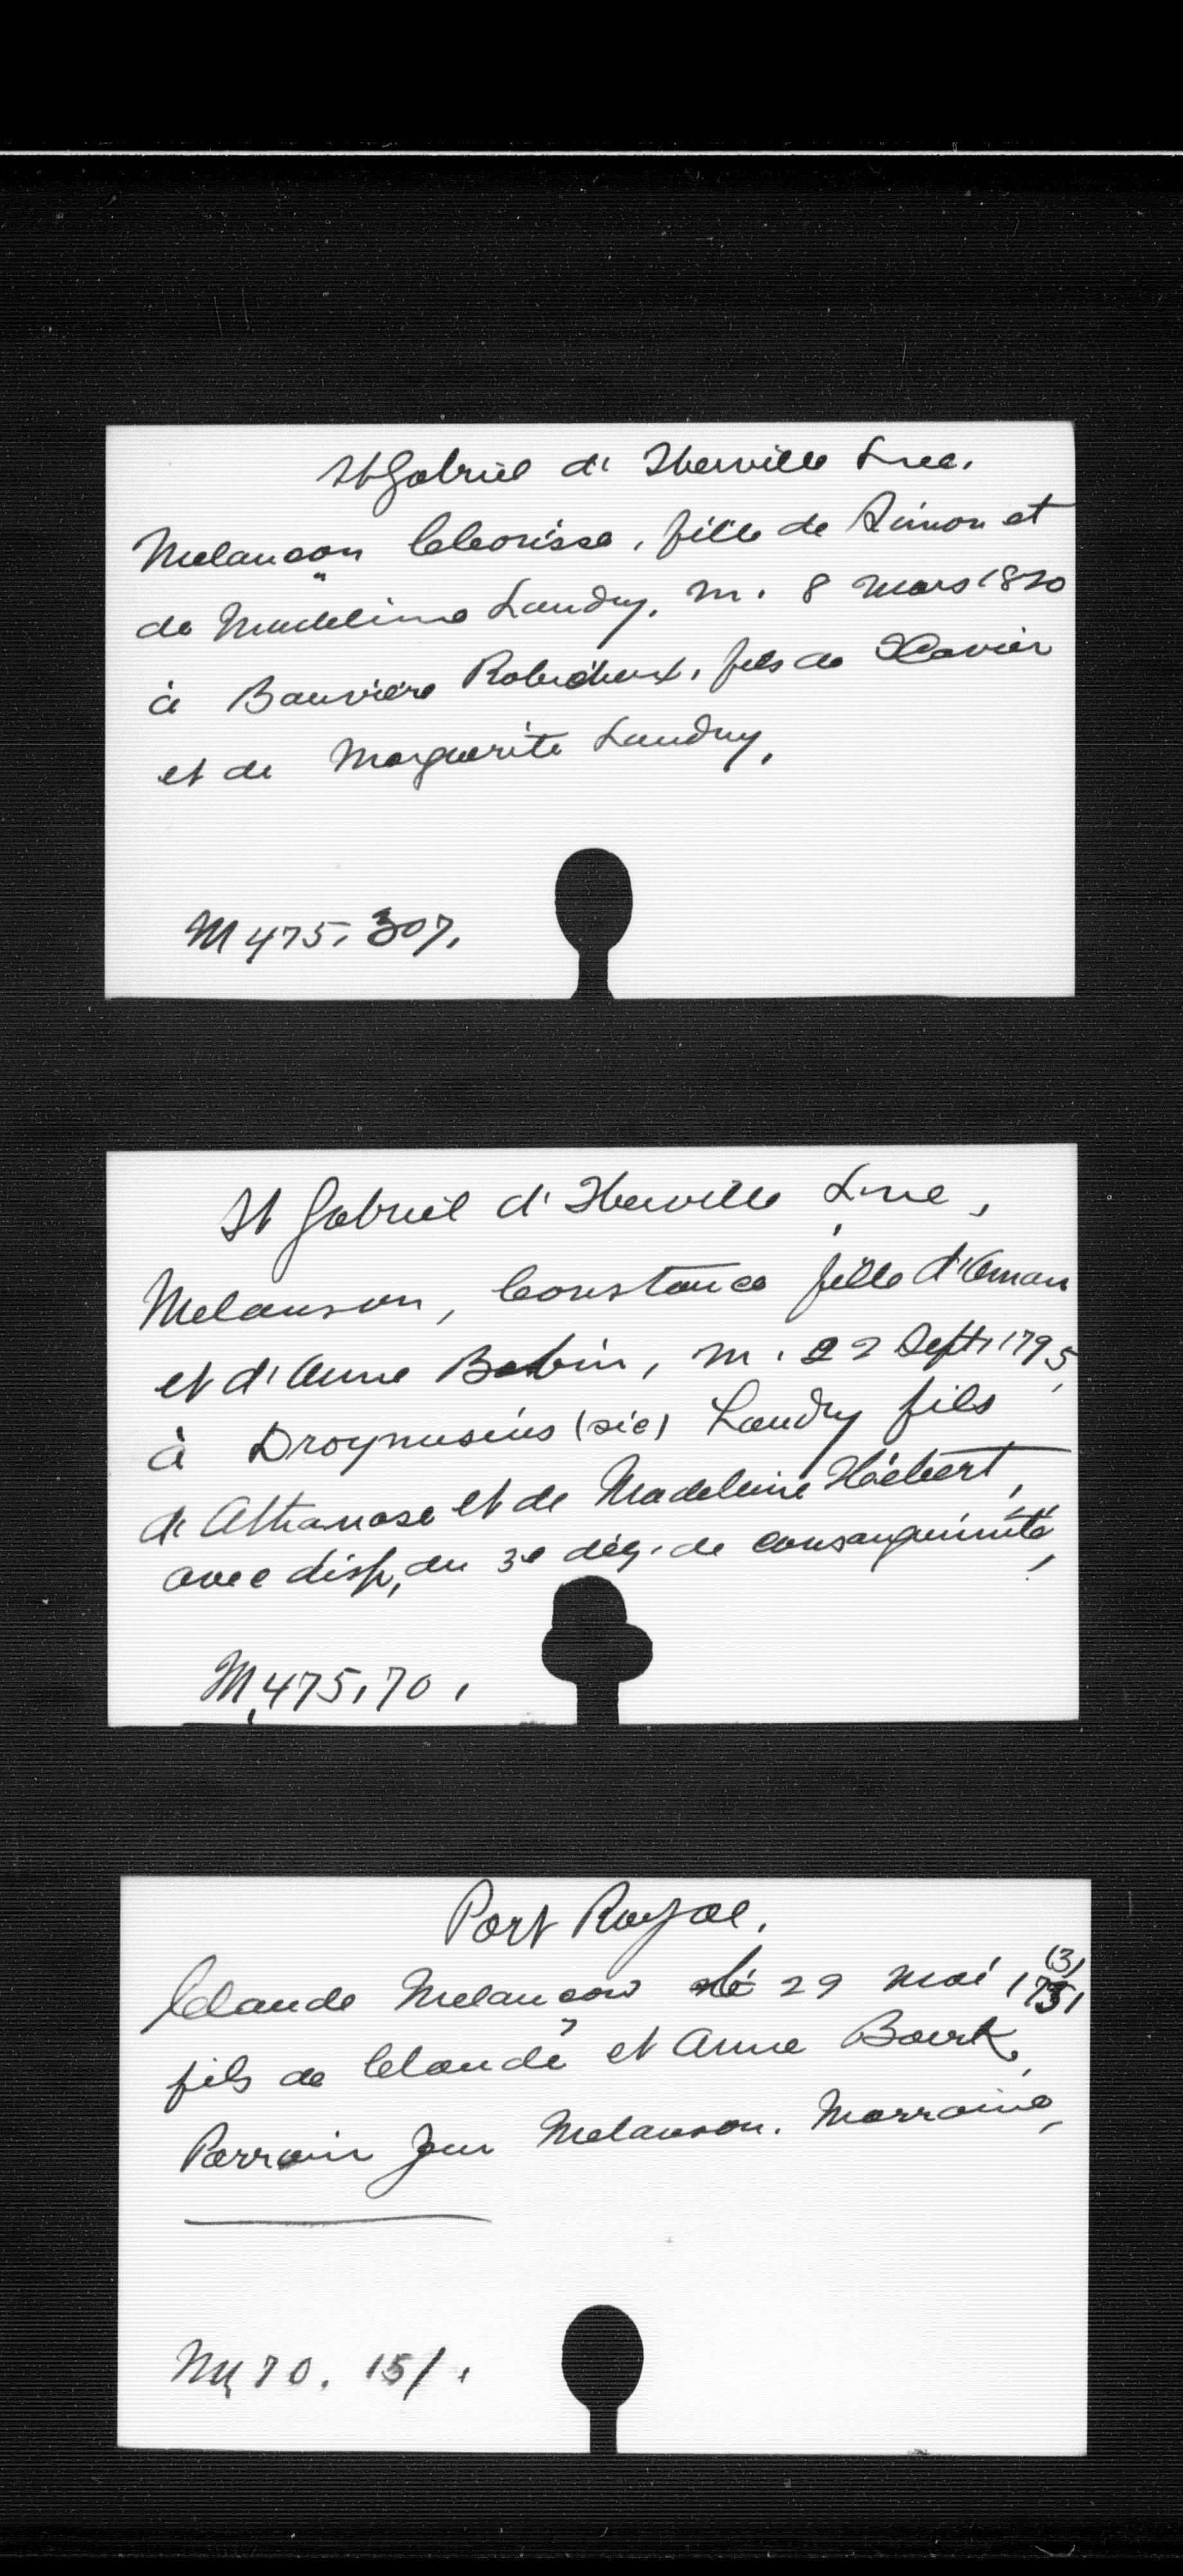 St Gabriel d'Iberville Lne.
Melançon Clorisse, fille de Simon et
de Madeline Landry, m. 8 Mars 1820
à Bauvière Robichaux, fils de Xavier
et de Marguerite Landry,
M 475. 307.
St Gabriel d'Iberville Lne,
Melanson, Constance fille d'Oman
et d'Anne Babin, m. 22 Sept. 1795,
à Droynusius (sic) Landry fils
de Athanase et de Madeleine Hébert,
avec disp, du 3e deg. de consanguinité,
M,475,70,
Port Royal.
Claude Melançon né 29 mai 1731
(3)
fils de Claude et Anne Bourk,
Parrain Jean Melanson. Marraine,
M, 70. 151.